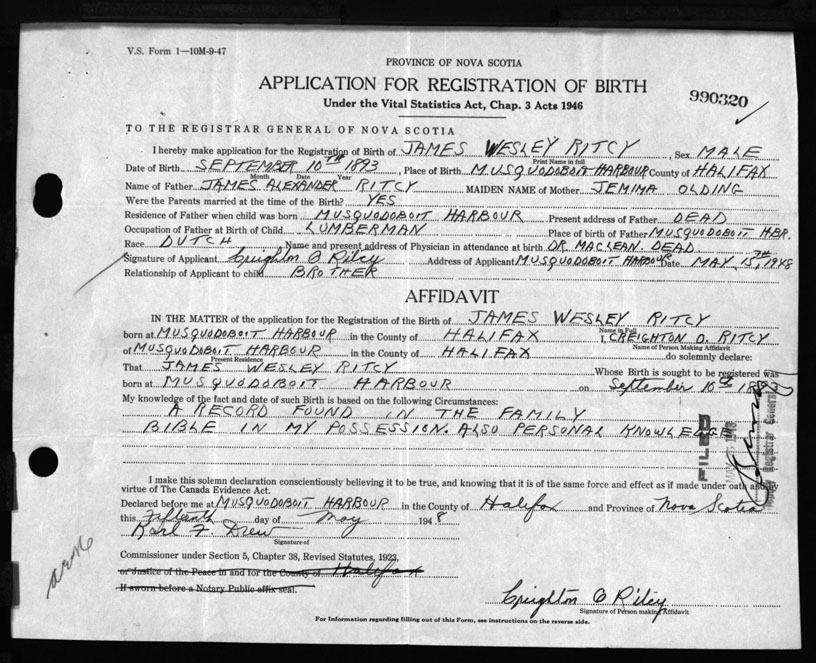 V.S. Form 1—10M-9-47
PROVINCE OF NOVA SCOTIA
APPLICATION FOR REGISTRATION OF BIRTH
990320
Under the Vital Statistics Act, Chap. 3 Acts 1946
TO THE REGISTRAR GENERAL OF NOVA SCOTIA
I hereby make application for the Registration of Birth of JAMES WESLEY RITCY, Sex MALE
Print Name in full
Date of Birth SEPTEMBER 10TH 1893, Place of Birth MUSQUODOBOIT HARBOUR County of HALIFAX
Month Date Year
Name of Father JAMES ALEXANDER RITCY MAIDEN NAME of Mother JEMIMA OLDING
Were the Parents married at the time of the Birth? YES
Residence of Father when child was born MUSQUODOBOIT HARBOUR Present address of Father DEAD
Occupation of Father at Birth of Child LUMBERMAN Place of birth of Father MUSQUODOBOIT HBR.
Race DUTCH Name and present address of Physician in attendance at birth DR. MACLEAN. DEAD
Signature of Applicant Creighton O Ritcy Address of Applicant MUSQUODOBOIT HARBOUR Date MAY 15TH 1948
Relationship of Applicant to child BROTHER
AFFIDAVIT
IN THE MATTER of the application for the Registration of the Birth of JAMES WESLEY RITCY
Name in Full
born at MUSQUODOBOIT HARBOUR in the County of HALIFAX I, CREIGHTON O. RITCY
Name of Person Making Affidavit
of MUSQUODOBOIT HARBOUR in the County of HALIFAX do solemnly declare:
Present Residence
That JAMES WESLEY RITCY Whose Birth is sought to be registered was
born at MUSQUODOBOIT HARBOUR on September 10th 1893
My knowledge of the fact and date of such Birth is based on the following Circumstances:
A RECORD FOUND IN THE FAMILY
BIBLE IN MY POSSESSION. ALSO PERSONAL KNOWLEDGE
FILED
Registrar General
I make this solemn declaration conscientiously believing it to be true, and knowing that it is of the same force and effect as if made under oath and by
virtue of The Canada Evidence Act.
Declared before me at MUSQUODOBOIT HARBOUR in the County of Halifax and Province of Nova Scotia
this Fifteenth day of May 1948
Karl F. Drew
Signature of
Commissioner under Section 5, Chapter 38, Revised Statutes, 1923,
or Justice of the Peace in and for the County of Halifax
If sworn before a Notary Public affix seal.
Creighton O Ritcy
Signature of Person making Affidavit
For Information regarding filling out of this Form, see instructions on the reverse side.